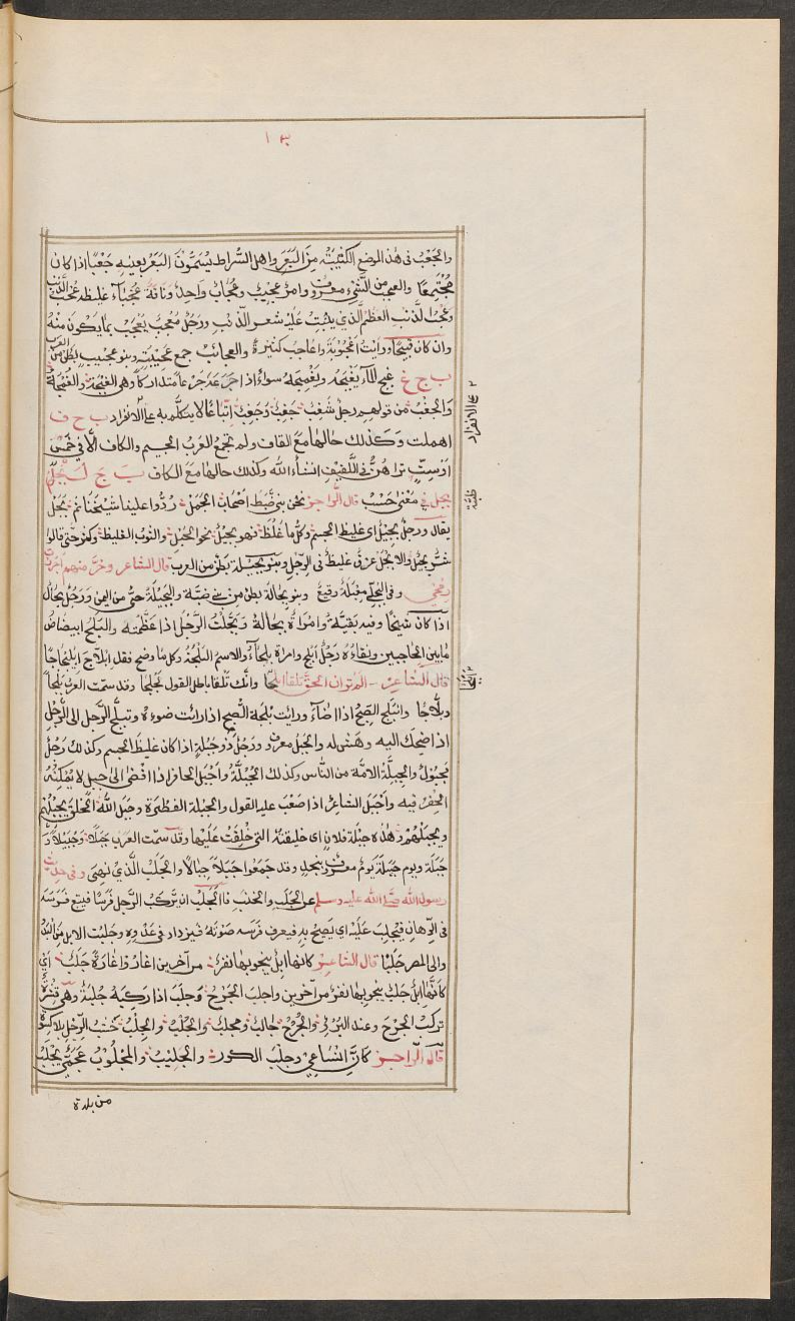 ١٣
والجَعْبُ فى هٰذا الموضع الكَثيبَتُه مِنَ البَعَرِ واهل السَّراط يُسَمُّونَ البَعَرَ بعينِهِ جَعْبًا اذا كان
مُجْتَمِعًا والعجب من الشَّئ معروف وامرٌ عجيبٌ وعُجابٌ واحدٌ وناقةٌ عَجْباءُ غليظة عَجْب الذَّنَب
وعَجْبُ الذَّنَبِ العظم الذى ينبُتُ عَلَيْه شعر الذَّنَبِ ورَجُلٌ مُعْجِبٌ يُعْجِبُ بما يكون منه
وان كان قبيحًا ورايتُ اُعْجُوبَةً واعاجِيبَ كثيرةً والعجائب جمع عَجيبَةٍ وبنو عجيبٍ بطن من العرب
ب ج غ غَبَجَ الماءَ يَغْبِجُهُ سواءٌ اذا جَرَعَهُ جَرْعًا متداركًا وهى الغَبْجَةُ والغُمْجَةُ
والجَغْبُ من قولهم رجلٌ شَغِبٌ جَغِبٌ وَجَغِبٌ اِتباعًا لا يتكلّم به على الانفراد ب ج ف
اهملت وَكَذلك حالها مَعَ القاف ولم تجمع العَرَبُ الجيم والكاف الّا فى خَمْسٍ
اوْ سِتٍّ تراهُنَّ فى اللَّفيفِ انشاءَ الله وكذلك حالها مَعَ الكاف ب ج ل بَجَلْ
بجلى فى مَعْنى حَسْب قال الرّاجز نحن بنى ضَبَّة اَصْحابُ الجَمَلْ رُدُّوا علينا شَيْخَنَا ثمّ بَجَلْ
يقال ورجلٌ بجيلٌ اى غليظ الجسم وكُلُّ ما غَلُظَ فهو بجيلٌ نحو الحَبْلِ والثوب الغليظ وكثر حتى قالوا
شَرٌّ بجيلٌ والابْجَلُ عرق غليظٌ فى الرِّجلِ وبنو بَجيلة بَطنٌ من العرب قال الشاعر
وفى البَجَلِىِّ مِعْبَلَةٌ وقيعُ وبنو بجالة بطن من بنى ضبّة والبَجيلة حىٌّ من اليمن ورَجُلٌ بَجَالٌ
اذا كان شيخًا وفيه بَقِيَّةٌ وامراَةٌ بجالةٌ وبَجَّلْتُ الرَّجُلَ اذا عَظَّمته والبَلَجُ ابيضاضُ
مابين الحاجبين ونقاءُهُ رَجُلٌ اَبْلَجُ وامراةٌ بلجاءُ والاسم البُلْجَةُ وكلّ ما وضح فقد ابلاجَّ ابليجاجًا
قال الشاعر المْ تَرَ ان الحقَّ تَلقاهُ ابلجًا وانّك تلقى باطل القول لَجْلَجا وقد سمّت العرب بَلْجًا
وبلّاجًا وانبَلَجَ الصبحُ اذا اضاءَ ورايتُ بُلْجَة الصُّبحِ اذا رايتَ ضوءه وتبلّجَ الرَّجل الى الرَّجل
اذا ضحك اليه وهَشَّ له والجبلُ معروف ورجُلٌ ذو جُبْلَةٍ اذا كان غليظَ الجسم وكذلك رَجُلٌ
مجبولٌ والجِبِلَّةُ الامّة من النّاس وكذلك الجُبُلَّةُ واَجْبَلَ الحافرُ اذا اَفْضَى الى جبل لا يُمْكِنُهُ
الحفرُ فيه واَجْبَلَ الشاعرُ اذا صَعُبَ عليه القول والجبلة الفطرة وجَبَلَ اللهُ الخلق يجبُلُهم
ويجبِلُهُمْ وهٰذه جِبْلَةُ فلان اى خليقتهُ التى خُلِقَتْ عَلَيْها وقد سمّت العَرَب جَبَلًا وجُبَيْلًا وَ
جَبَلَةَ ويوم جَبَلَة يَومٌ معروفٌ بنجدٍ وقد جَمَعُوا جَبَلًا جِبالًا والجَلَبُ الَّذى نُهِىَ وفى حديث
رسول الله صلى الله عليه وسلم عن الجَلَبِ والجَنَبِ فاالجَلَبُ ان يَرْكَبَ الرَّجل فَرَسًا فيتبع فَرَسَه
فى الرِّهانِ فيُجْلِبَ عَلَيْهِ اى يَصيحُ به فيعرف فَرَسه صَوْتَهُ فيزداد فى عَدْوِهِ وجَلَبْت الابل مِنَ البَدْوِ
والى المصر جَلْبًا قال الشاعر كانها ابلٌ ينجو بها نفرٌ من آخرين اغاروا غارةً جَلَبُ اى
كاَنَّها ابلٌ جَلَبٌ ينجو بها نفرٌ من آخرين واجلب الجُرْحُ وَجَلَبَ اذا رَكِبَهُ جُلْبَةٌ وهى قِشْرَةٌ
تركَبُ الجُرْحَ وعند البُرْءِ والجُرْحُ جالبٌ ومجلبٌ والجُلْبُ والجِلْبُ خَشَبُ الرَّحلِ بلا كسوةٍ
قال الراجز كاَنَّ انساعى وجِلْبَ الكورِ والجليبُ والمجْلُوبُ عَجَمِىٌّ يُجْلَبُ
من بلدة
على الانفراد